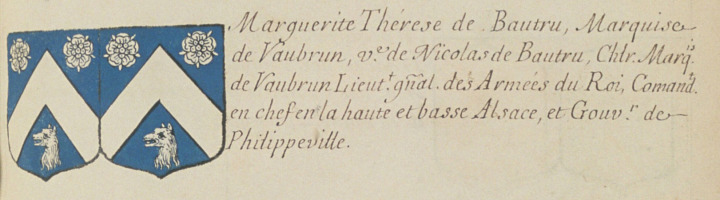 Marguerite Thérese de Bautru, Marquise
de Vaubrun, v.e de Nicolas de Bautru, Chlr. Marq.is
de Vaubrun Lieut.t gñal. des Armées du Roi, Comand.t
en chef en la haute et basse Alsace, et Gouv.r de
Philippeville.